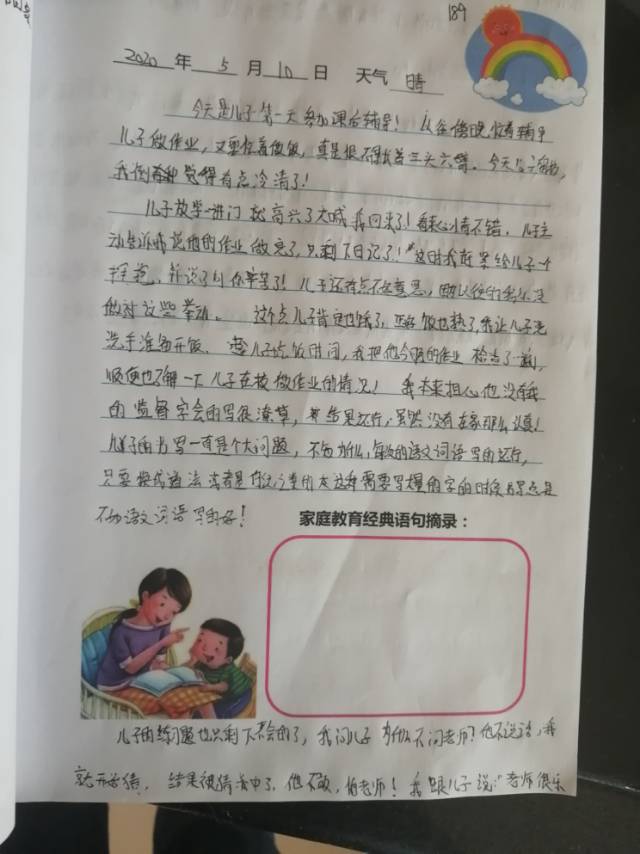 189
2020 年 5 月 10 日 天气 晴
今天是儿子第一天参加课后辅导! 以往傍晚忙着辅导
儿子做作业,又要忙着做饭,真是恨不得长着三头六臂。今天
我倒有种觉得有点冷清了!
儿子放学一进门就高兴了大喊我回来了!看来心情不错,儿子主
动告诉我说他的作业做完了,只剩下日记了!这时我赶紧给儿子一个
拥抱,并说了句你辛苦了!儿子还有点不好意思,因为以往的我从没
做过这些举动。 这个点儿子肯定也饿了,正好饭也熟了,就让儿子洗
洗手准备开饭。趁儿子吃饭时间,我把他今天的作业检查了一遍,
顺便也了解一下儿子在校做作业的情况! 我本来担心他没有我
的监督字会的写很潦草,结果还行,虽然没有在家那么认真!
儿子的书写一直是个大问题,不知为什么,每次的语文词语写的还行,
只要换成道法或者是 这种需要写大量的字的时候
不如语文词语写的好!
家庭教育经典语句摘录:
儿子的练习题也只剩下不会的了,我问儿子为什么不问老师?他不说话,我
就开始猜,结果被猜中了,他不敢,怕老师!我跟儿子说:"老师很乐